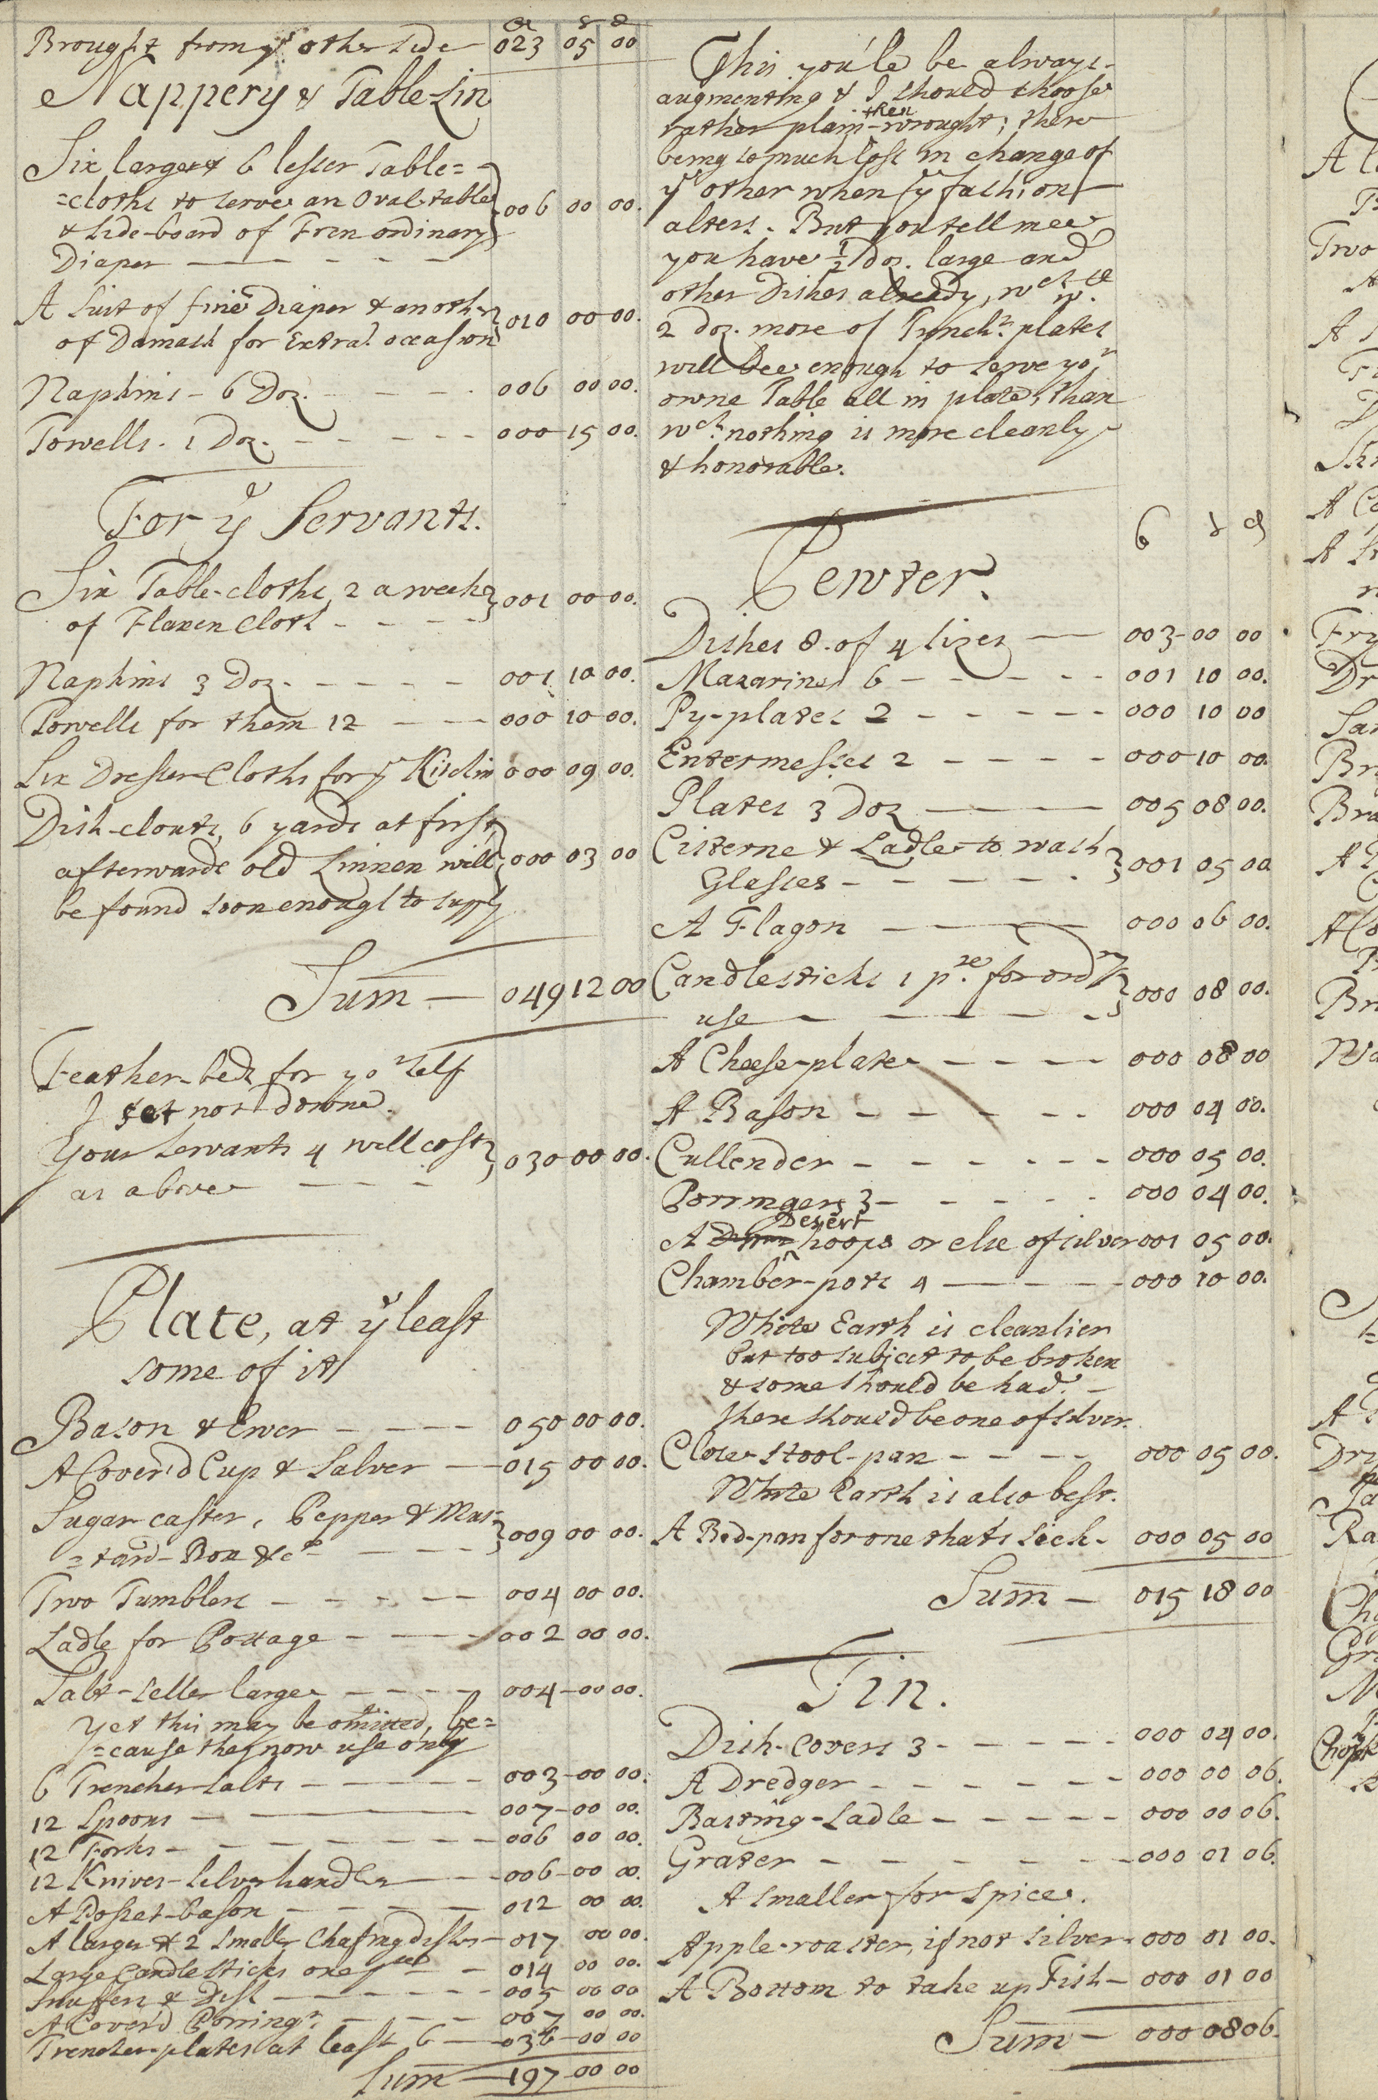 Brought from yᵉ other side 023 05 00
Nappery & Table-Lin
Six large & 6 lesser Table=
=cloths to serve an Oval-table
& side-board of Fren ordinary
Diaper 006 00 00.
A Suit of fine Diaper & anoth.
of Damask for Extra. occasion 010 00 00.
Napkins - 6 Doz. 006 00 00.
Towells. 1 Doz. 000 15 00.
For yᵉ Servants.
Six Table-cloths, 2 a week
of Flaxen Cloth 001 00 00.
Napkins 3 Doz. 001 10 00.
Towells for them 12 000 10 00.
Six Dresser-Cloths for yᵉ Kitchin 000 09 00.
Dish-clouts, 6 yards at first
afterwards old Linnen will 000 03 00
be found soon enough to supply
Sum 049 12 00
Feather-beds for yoʳ self
I set not downe.
Your servants 4 will cost
as above 030 00 00.
Plate, at yᵉ least
some of it
Bason & Ewer 050 00 00.
A Cover'd Cup & Salver 015 00 00.
Sugar caster, Pepper & Mus=
=tard-Box &c 009 00 00.
Two Tumblers 004 00 00.
Ladle for Pottage 002 00 00.
Salt-seller large 004-00 00.
Yet this may be omitted, be=
=cause they now use only
6 Trencher-salts 003-00 00.
12 Spoons 007-00 00.
12 Forks 006 00 00.
12 Knives-silver handles 006-00 00.
A Posset-bason 012 00 00.
A larger & 2 smaller Chafingdishes 017 00 00.
Large Candlesticks one 014 00 00.
Snuffers & Dish 005 00 00
A Cover'd Porringʳ. 007 00 00.
Trencher-plates at least 6 036-00 00
Sum 197-00 00
This you'le be always
augmenting & I should choose
rather plain then wrought; there
being so much lost in change of
yᵉ other when yᵉ fashion
alters. But you tell mee
you have ½ Doz. large and
other Dishes already, wᶜʰ wᵗʰ
2 doz. more of Trenchʳ plates
will bee enough to serve yoʳ
owne Table all in plate, than
wᶜʰ nothing is more cleanly
& honorable.
Pewter.
Dishes 8. of 4 sizes 003-00 00
Mazarines 6 001 10 00.
Py-plates 2 000 10 00
Entermesses 2 000 10 00.
Plates 3 Doz 005 08 00.
Cisterne & Ladle to wash
Glasses 001 05 00
A Flagon 000 06 00.
Candlesticks 1 pʳᵉ. for ordʳʸ
use 000 08 00.
A Cheese-plate 000 08 00
A Bason 000 04 00.
Cullender 000 05 00.
Porringers 3 000 04 00.
A Desert hoops or else of silver 001 05 00.
Chamber-pots 4 000 10 00.
White Earth is cleanlier
but too subject to be broken
& some should be had.
there should be one of silver.
Close-stool-pan 000 05 00.
White Earth is also best.
A Bed-pan for one that's sick 000 05 00
Sum 015 18 00
Tin.
Dish-covers 3 000 04 00.
A Dredger 000 00 06.
Basting-Ladle 000 00 06.
Grater 000 01 06.
A smaller for spice.
Apple-roaster, if not silver 000 01 00.
A Bottom to take up Fish 000 01 00
Sum 000 08 06.